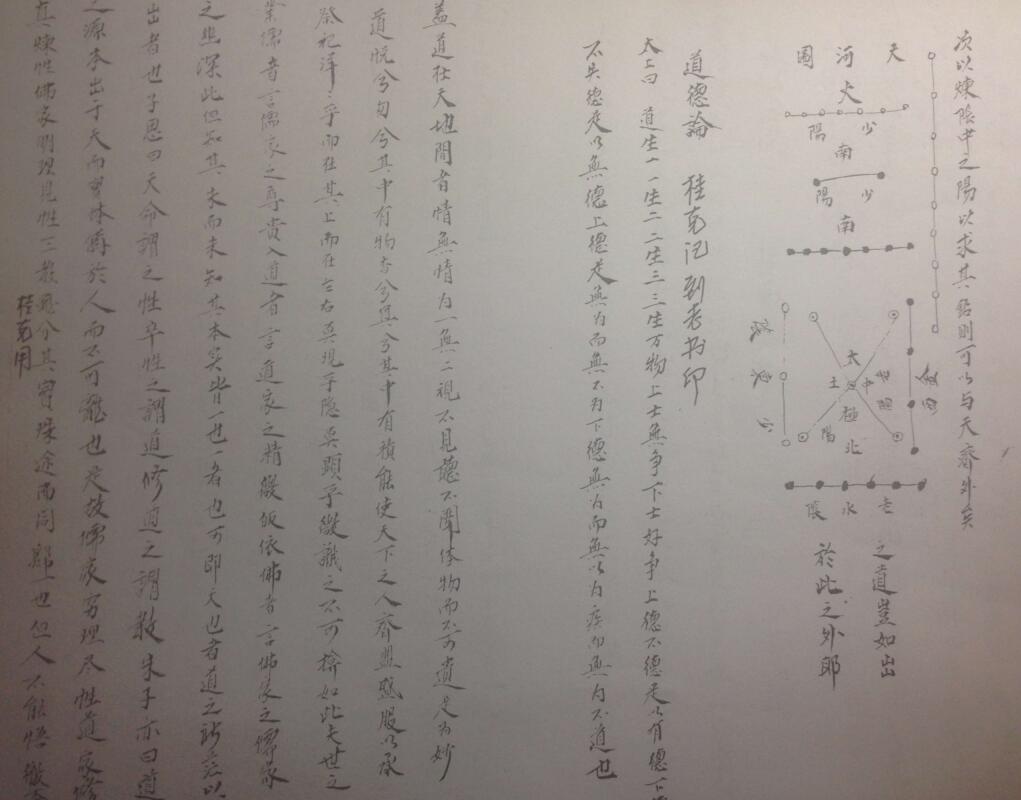 次以煉陰中之陽以求其
則可以与天齊外矣
天 河 圖
火
少 陽
南
少 陽
南
太 極
土 中
陽 北
西
東
老 水 陰
之道豈如出
於此之外耶
道德論 桂克
太上曰 道生一一生二二生三三生万物上士無争下士好争上德不德是以有德下
不失德是以無德上德是無为而無不为下德無为而無以为 不道也
蓋道在天地間者情無情为一無二視不見聽不聞体物而不可遺是为妙
道恍兮匆兮其中有物杳兮冥兮其中有積能使天下之人齊盟盛服以承
祭祀洋乎而在其上而在左右莫現乎隐莫顯乎微識之不可掩如此夫世之
業儒者言儒家之尊貴入道者言道家之精微皈依佛者言佛家之儒家
之幽深此但知其末而未知其本实皆一也一者也可即天也者道之所 以
出者也子思曰天命謂之性率性之謂道修道之謂教朱子亦曰道
之源本出于天而實体 於人而不可離也是故儒家穷理尽性道家修
真煉性佛家明理見性三教 分其實殊途而同歸一也但人不能悟徹
桂克用